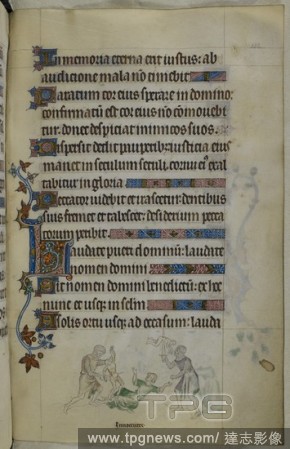 In memoria eterna erit iustus: ab
audicione mala nō timebit
Paratum cor eius sperare in domino:
confirmatū est cor eius nō cōmovebi
tur: donec despiciat inimicos suos.
Dispersit dedit pauperibus iusticia eius
manet in seculum seculi: cornu eiꝰ exal
tabitur in gloria.
Peccator videbit et irascetur: dentibus
suis fremet et tabescet: desiderium pecca
torum peribit.
Laudate pueri dominū: laudate
nomen domini
Sit nomen domini benedictū: ex hoc
nunc et usqꝫ in sclm
A solis ortu usqꝫ ad occasum: lauda
TPG
www.tpgnews.com/ 達志影像